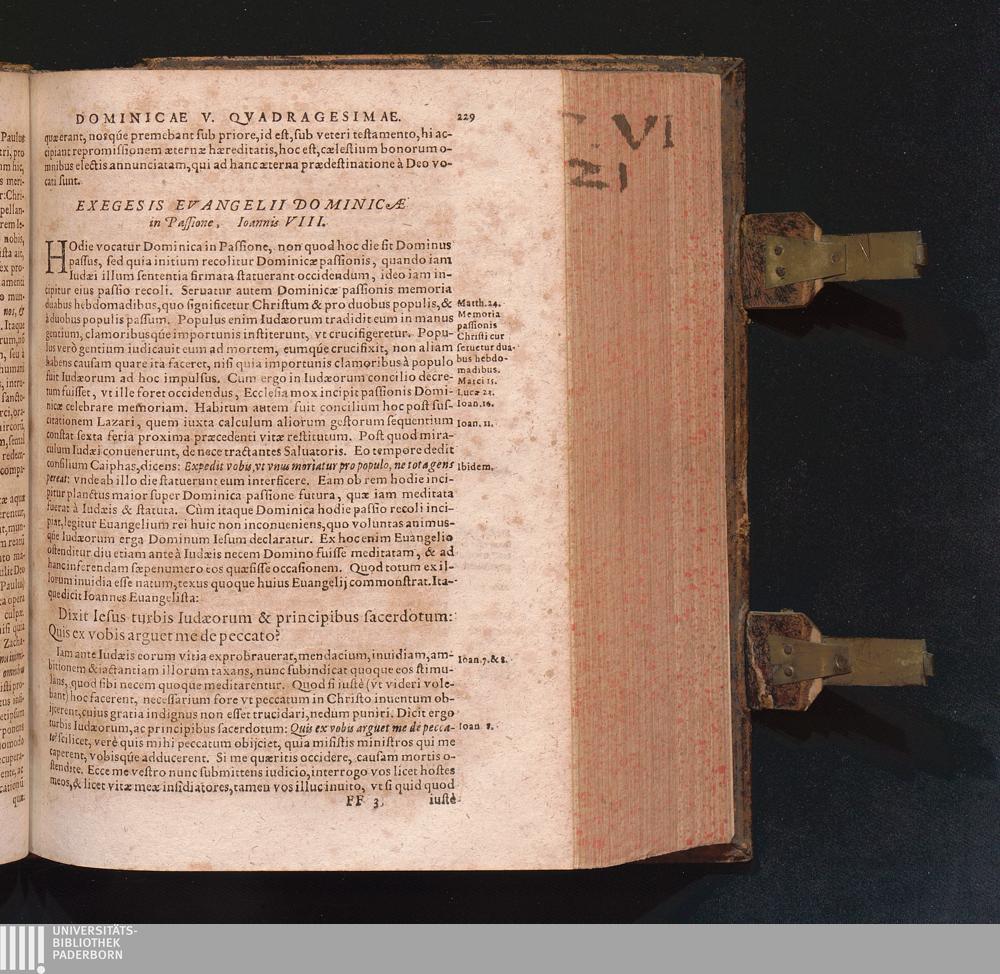 DOMINICAE V. QVADRAGESIMAE. 229
quæ erant, nosqúe premebant sub priore, id est, sub veteri testamento, hi ac-
cipiant repromissionem æternæ hæreditatis, hoc est, cælestium bonorum o-
mnibus electis annunciatam, qui ad hanc æterna prædestinatione à Deo vo-
cati sunt.
EXEGESIS EVANGELII DOMINICÆ
in Passione, Ioannis VIII.
HOdie vocatur Dominica in Passione, non quod hoc die sit Dominus
passus, sed quia initium recolitur Dominicæ passionis, quando iam
Iudæi illum sententia firmata statuerant occidendum, ideo iam in-
cipitur eius passio recoli. Seruatur autem Dominicæ passionis memoria
duabus hebdomadibus, quo significetur Christum & pro duobus populis, &
à duobus populis passum. Populus enim Iudæorum tradidit eum in manus
gentium, clamoribusqúe importunis institerunt, vt crucifigeretur. Popu-
lus verò gentium iudicauit eum ad mortem, eumqúe crucifixit, non aliam
habens causam quare ita faceret, nisi quia importunis clamoribus à populo
fuit Iudæorum ad hoc impulsus. Cum ergo in Iudæorum concilio decre-
tum fuisset, vt ille foret occidendus, Ecclesia mox incipit passionis Domi-
nicæ celebrare memoriam. Habitum autem fuit concilium hoc post sus-
citationem Lazari, quem iuxta calculum aliorum gestorum sequentium
constat sexta feria proxima præcedenti vitæ restitutum. Post quod mira-
culum Iudæi conuenerunt, de nece tractantes Saluatoris. Eo tempore dedit
consilium Caiphas, dicens: Expedit vobis, vt vnus moriatur pro populo, ne tota gens
pereat: vnde ab illo die statuerunt eum interficere. Eam ob rem hodie inci-
pitur planctus maior super Dominica passione futura, quæ iam meditata
fuerat à Iudæis & statuta. Cùm itaque Dominica hodie passio recoli inci-
piat, legitur Euangelium rei huic non inconueniens, quo voluntas animus-
qúe Iudæorum erga Dominum Iesum declaratur. Ex hoc enim Euangelio
ostenditur diu etiam antè à Iudæis necem Domino fuisse meditatam, & ad
hanc inferendam sæpenumero eos quæsisse occasionem. Quod totum ex il-
lorum inuidia esse natum, texus quoque huius Euangelij commonstrat. Ita-
que dicit Ioannes Euangelista:
Dixit Iesus turbis Iudæorum & principibus sacerdotum:
Quis ex vobis arguet me de peccato?
Iam ante Iudæis eorum vitia exprobrauerat, mendacium, inuidiam, am-
bitionem & iactantiam illorum taxans, nunc subindicat quoque eos stimu-
lans, quod sibi necem quoque meditarentur. Quod si iustè (vt videri vole-
bant) hoc facerent, necessarium fore vt peccatum in Christo inuentum ob-
ijcerent, cuius gratia indignus non esset trucidari, nedum puniri. Dicit ergo
turbis Iudæorum, ac principibus sacerdotum: Quis ex vobis arguet me de pecca-
to? scilicet, verè quis mihi peccatum obijciet, quia misistis ministros qui me
caperent, vobisqúe adducerent. Si me quæritis occidere, causam mortis o-
stendite. Ecce me vestro nunc submittens iudicio, interrogo vos licet hostes
meos, & licet vitæ meæ insidiatores, tamen vos illuc inuito, vt si quid quod
FF 3 iustè
Matth. 24.
Memoria
passionis
Christi cur
seruetur dua-
bus hebdo-
madibus.
Marci 15.
Lucæ 21.
Ioan. 16.
Ioan. 11.
Ibidem.
Ioan. 7. & 8.
Ioan. 8.
VI
21
UNIVERSITÄTS-
BIBLIOTHEK
PADERBORN